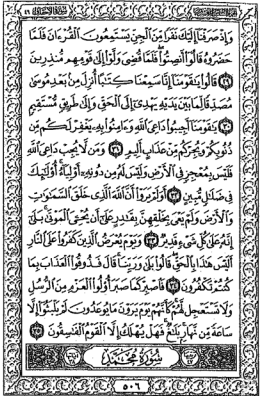 وَإِذْ صَرَفْنَا إِلَيْكَ نَفَرًا مِّنَ الْجِنِّ يَسْتَمِعُونَ الْقُرْءَانَ فَلَمَّا
حَضَرُوهُ قَالُوا أَنصِتُوا فَلَمَّا قُضِىَ وَلَّوْا إِلَىٰ قَوْمِهِم مُّنذِرِينَ
﴿٢٩﴾ قَالُوا يَٰقَوْمَنَا إِنَّا سَمِعْنَا كِتَٰبًا أُنزِلَ مِن بَعْدِ مُوسَىٰ
مُصَدِّقًا لِّمَا بَيْنَ يَدَيْهِ يَهْدِىٓ إِلَى الْحَقِّ وَإِلَىٰ طَرِيقٍ مُّسْتَقِيمٍ
﴿٣٠﴾ يَٰقَوْمَنَآ أَجِيبُوا دَاعِىَ اللَّهِ وَءَامِنُوا بِهِ يَغْفِرْ لَكُم مِّن
ذُنُوبِكُمْ وَيُجِرْكُم مِّنْ عَذَابٍ أَلِيمٍ ﴿٣١﴾ وَمَن لَّا يُجِبْ دَاعِىَ اللَّهِ
فَلَيْسَ بِمُعْجِزٍ فِى الْأَرْضِ وَلَيْسَ لَهُ مِن دُونِهِ أَوْلِيَآءُ أُولَٰٓئِكَ
فِى ضَلَٰلٍ مُّبِينٍ ﴿٣٢﴾ أَوَلَمْ يَرَوْا أَنَّ اللَّهَ الَّذِى خَلَقَ السَّمَٰوَٰتِ
وَالْأَرْضَ وَلَمْ يَعْىَ بِخَلْقِهِنَّ بِقَٰدِرٍ عَلَىٰٓ أَن يُحْـِۧىَ الْمَوْتَىٰ بَلَىٰٓ
إِنَّهُ عَلَىٰ كُلِّ شَىْءٍ قَدِيرٌ ﴿٣٣﴾ وَيَوْمَ يُعْرَضُ الَّذِينَ كَفَرُوا عَلَى النَّارِ
أَلَيْسَ هَٰذَا بِالْحَقِّ قَالُوا بَلَىٰ وَرَبِّنَا قَالَ فَذُوقُوا الْعَذَابَ بِمَا
كُنتُمْ تَكْفُرُونَ ﴿٣٤﴾ فَاصْبِرْ كَمَا صَبَرَ أُولُوا الْعَزْمِ مِنَ الرُّسُلِ
وَلَا تَسْتَعْجِل لَّهُمْ كَأَنَّهُمْ يَوْمَ يَرَوْنَ مَا يُوعَدُونَ لَمْ يَلْبَثُوٓا إِلَّا
سَاعَةً مِّن نَّهَارٍ بَلَٰغٌ فَهَلْ يُهْلَكُ إِلَّا الْقَوْمُ الْفَٰسِقُونَ ﴿٣٥﴾
سُورَةُ مُحَمَّدٍ
٥٠٦